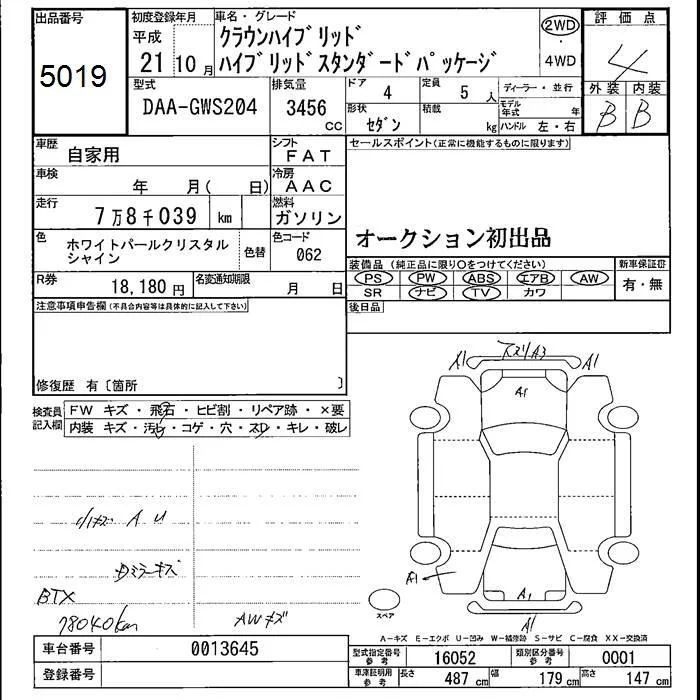 出品番号
5019
初度登録年月
平成
21 10 月
車名・グレード
クラウンハイブリッド
ハイブリッドスタンダードパッケージ
2WD
・
4WD
評価点
4
外装 内装
B B
型式
DAA-GWS204
排気量
3456
cc
ドア
4
定員
5 人
ディーラー・並行
形状
セダン
積載
kg
モデル年式 年
ハンドル 左・右
車歴
自家用
シフト
FAT
車検
年 月( 日)
冷房
AAC
走行
7万8千039 km
燃料
ガソリン
色
ホワイトパールクリスタル
シャイン
色替
色コード
062
R券
18,180 円
名変通知期限
月 日
セールスポイント(正常に機能するものに限ります)
オークション初出品
装備品(純正品に限り○をつけてください)
PS PW ABS エアB AW
SR ナビ TV カワ
新車保証書
有・無
注意事項申告欄(不具合内容等は具体的に記入して下さい)
後日品
修復歴 有〔箇所 〕
検査員
記入欄
FW キズ・飛石・ヒビ割・リペア跡・×要
内装 キズ・汚れ・コゲ・穴・スレ・キレ・破レ
小キズ A U
Dミラーキズ
BTX
78040km
AWキズ
A1 スリA3 A1
A1
A1
A1
A1
スペア
A-キズ E-エクボ U-凹み W-補修跡 S-サビ C-腐食 XX-交換済
車台番号
0013645
登録番号
型式指定番号
参考
16052
類別区分番号
参考
0001
車庫証明用
参考
長さ
487 cm
幅
179 cm
高さ
147 cm